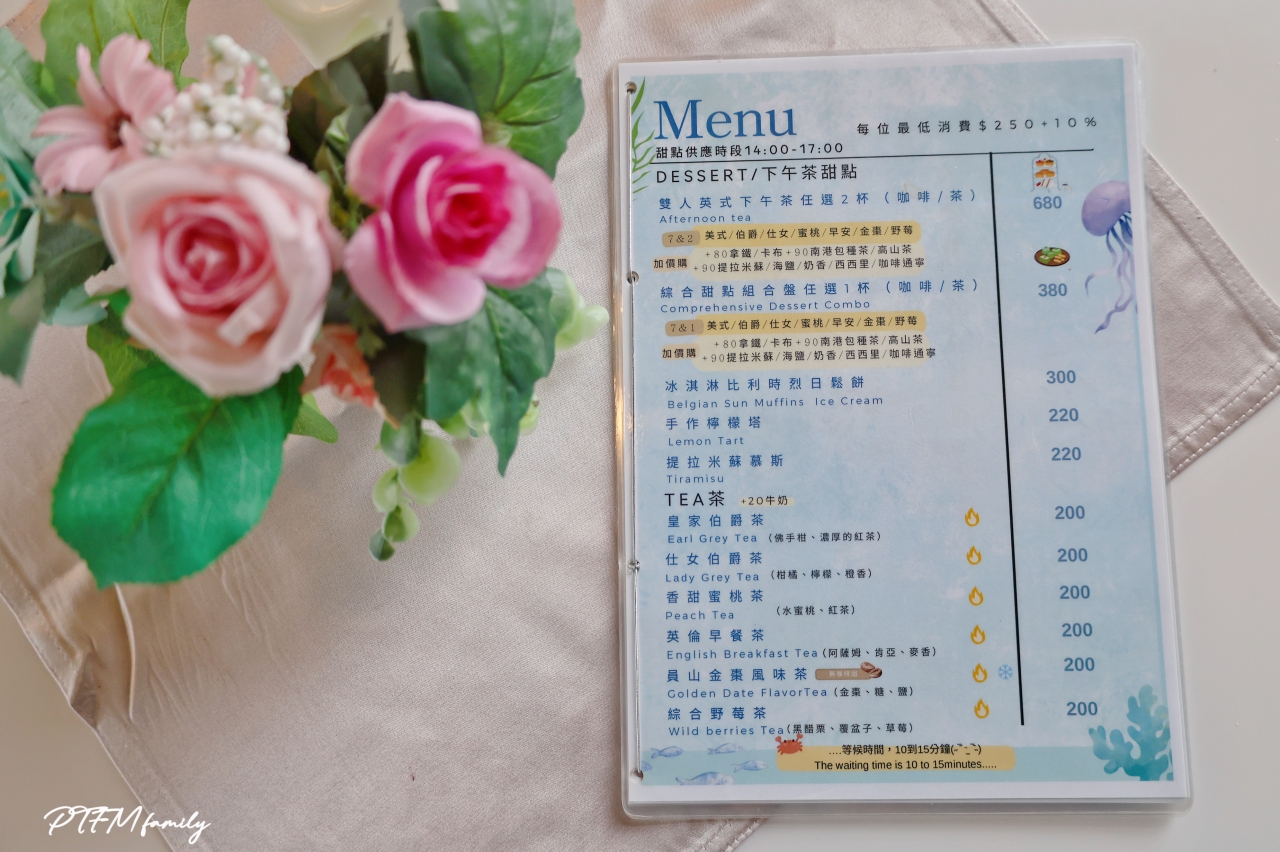 Menu
每位最低消費$250+10%
甜點供應時段14:00-17:00
DESSERT/下午茶甜點
雙人英式下午茶任選2杯(咖啡/茶)
680
Afternoon tea
7&2 美式/伯爵/仕女/蜜桃/早安/金棗/野莓
加價購
+80拿鐵/卡布+90南港包種茶/高山茶
+90提拉米蘇/海鹽/奶香/西西里/咖啡通寧
綜合甜點組合盤任選1杯(咖啡/茶)
380
Comprehensive Dessert Combo
7&1 美式/伯爵/仕女/蜜桃/早安/金棗/野莓
加價購
+80拿鐵/卡布+90南港包種茶/高山茶
+90提拉米蘇/海鹽/奶香/西西里/咖啡通寧
冰淇淋比利時烈日鬆餅
300
Belgian Sun Muffins Ice Cream
手作檸檬塔
220
Lemon Tart
提拉米蘇慕斯
220
Tiramisu
TEA茶 +20牛奶
皇家伯爵茶
200
Earl Grey Tea (佛手柑、濃厚的紅茶)
仕女伯爵茶
200
Lady Grey Tea (柑橘、檸檬、橙香)
香甜蜜桃茶
200
Peach Tea (水蜜桃、紅茶)
英倫早餐茶
200
English Breakfast Tea (阿薩姆、肯亞、麥香)
員山金棗風味茶
200
Golden Date FlavorTea (金棗、糖、鹽)
綜合野莓茶
200
Wild berries Tea (黑醋栗、覆盆子、草莓)
....等候時間，10到15分鐘
The waiting time is 10 to 15minutes.....
PTFM family